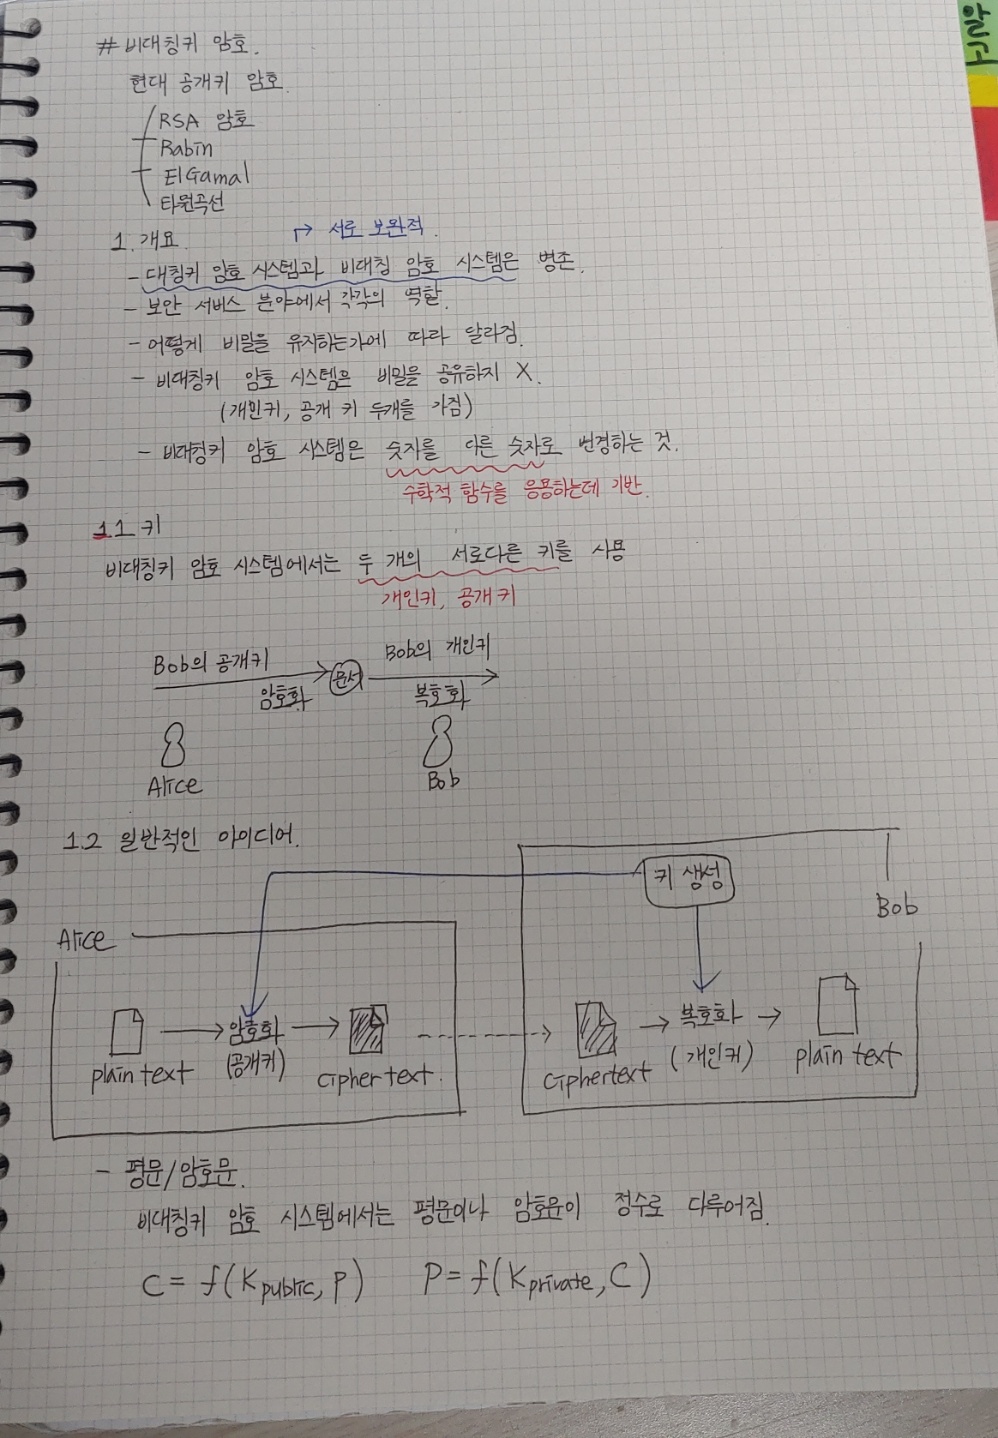 알고
# 비대칭키 암호.
현대 공개키 암호.
RSA 암호
Rabin
ElGamal
타원곡선
1. 개요.
서로 보완적.
- 대칭키 암호 시스템과 비대칭 암호 시스템은 병존.
- 보안 서비스 분야에서 각각의 역할.
- 어떻게 비밀을 유지하는가에 따라 달라짐.
- 비대칭키 암호 시스템은 비밀을 공유하지 X.
(개인키, 공개 키 두개를 가짐)
- 비대칭키 암호 시스템은 숫자를 다른 숫자로 변경하는 것.
수학적 함수를 응용하는데 기반.
1.1 키
비대칭키 암호 시스템에서는 두 개의 서로다른 키를 사용
개인키, 공개키
Bob의 공개키
암호화
문서
Bob의 개인키
복호화
Alice
Bob
1.2 일반적인 아이디어.
키 생성
Bob
Alice
plain text
암호화
(공개키)
cipher text.
ciphertext
복호화
(개인키)
plain text
- 평문/암호문.
비대칭키 암호 시스템에서는 평문이나 암호문이 정수로 다루어짐.
C = f(Kpublic, P) P = f(Kprivate, C)